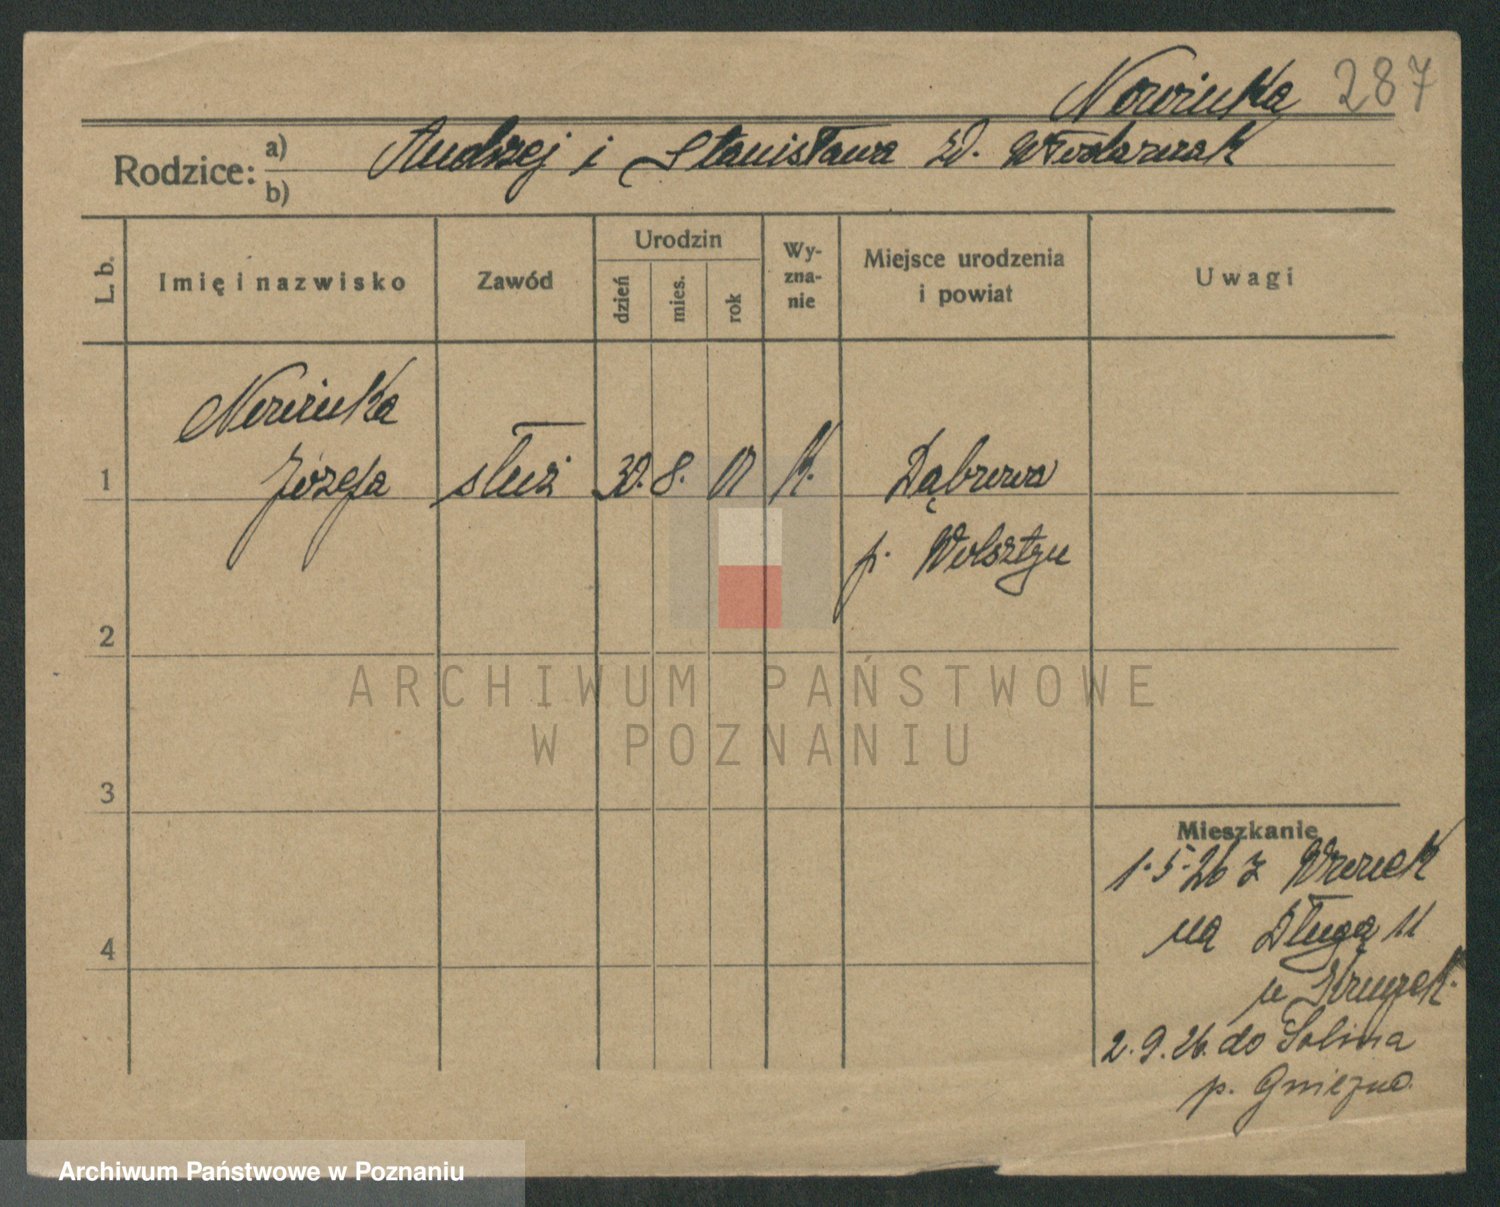 Nowinka 287
Rodzice: a) Andrzej i Stanisława zd. Włodarczak
b)
L. b.
Imię i nazwisko
Zawód
Urodzin
dzień
mies.
rok
Wy-
zna-
nie
Miejsce urodzenia
i powiat
Uwagi
Nowinka
1 Józefa służ 30. 8. 01 K. Dąbrowa
p. Wolsztyn
2
3
4
Mieszkanie
1.5.26 z Wronek
na Długą 11
u
2.9.26. do Solina
p. Gniezno.
ARCHIWUM PAŃSTWOWE
W POZNANIU
Archiwum Państwowe w Poznaniu